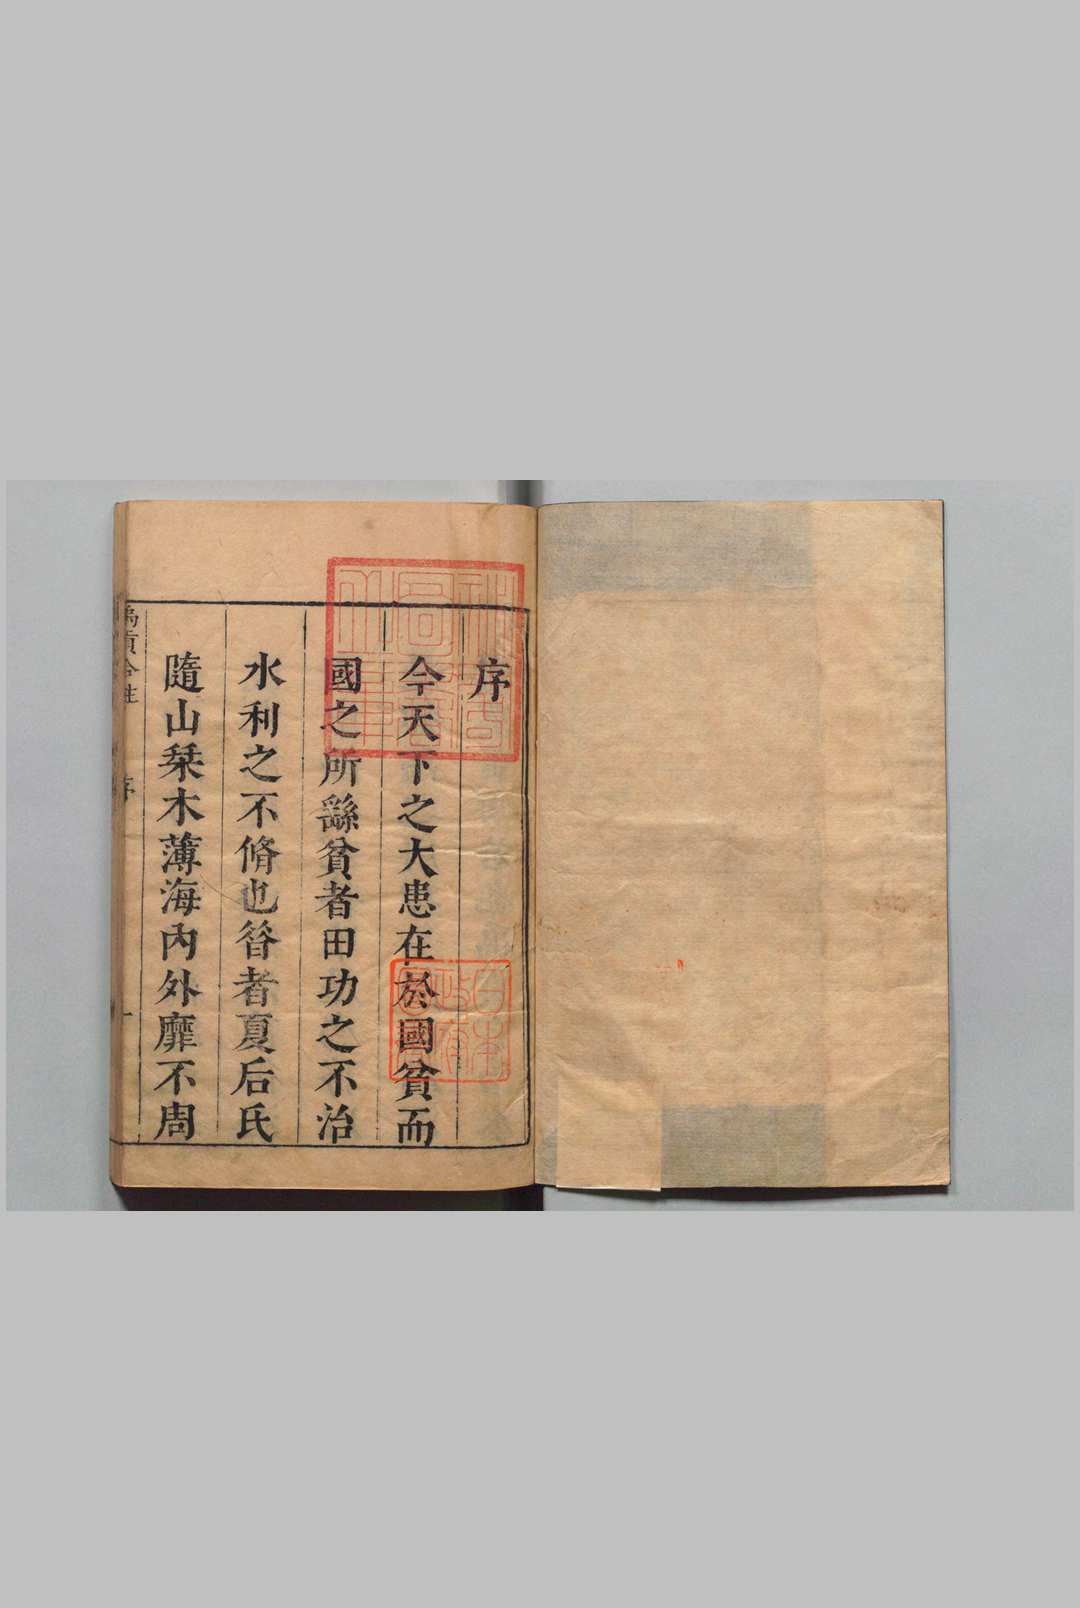 序
今天下之大患在於國貧而
國之所繇貧者田功之不治
水利之不脩也昝者夏后氏
隨山栞木薄海內外靡不周
禹貢合註
序
一
日本
政府
圖書